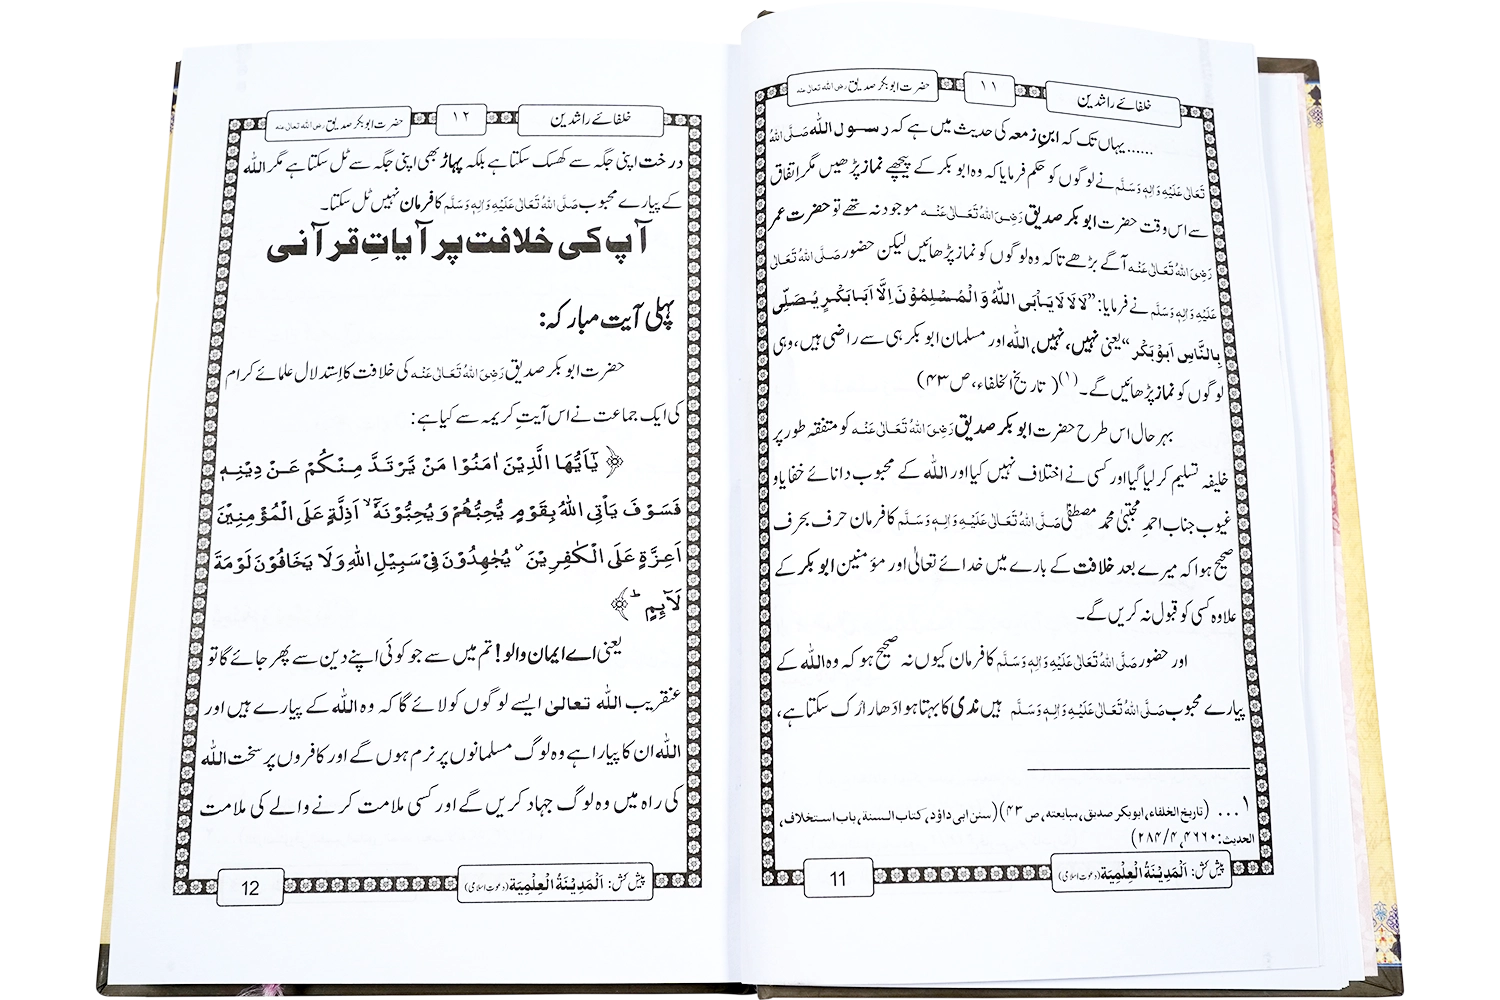 خلفائے راشدین
۱۱
حضرت ابوبکر صدیق رضی اللہ تعالیٰ عنہ
......یہاں تک کہ ابنِ زمعہ کی حدیث میں ہے کہ رسول اللہ صَلَّی اللہُ
تَعَالٰی عَلَیْہِ وَاٰلِہٖ وَسَلَّم نے لوگوں کو حکم فرمایا کہ وہ ابوبکر کے پیچھے نماز پڑھیں مگر اتفاق
سے اس وقت حضرت ابوبکر صدیق رَضِیَ اللہُ تَعَالٰی عَنْہ موجود نہ تھے تو حضرت عمر
رَضِیَ اللہُ تَعَالٰی عَنْہ آگے بڑھے تاکہ وہ لوگوں کو نماز پڑھائیں لیکن حضور صَلَّی اللہُ تَعَالٰی
عَلَیْہِ وَاٰلِہٖ وَسَلَّم نے فرمایا: ”لَا لَا لَا یَاْبَی اللہُ وَالْمُسْلِمُوْنَ اِلَّا اَبَابَکْرٍ یُصَلِّی
بِالنَّاسِ اَبُوْبَکْر“ یعنی نہیں، نہیں، اللہ اور مسلمان ابوبکر ہی سے راضی ہیں، وہی
لوگوں کو نماز پڑھائیں گے۔(۱)(تاریخ الخلفاء، ص ۴۳)
بہر حال اس طرح حضرت ابوبکر صدیق رَضِیَ اللہُ تَعَالٰی عَنْہ کو متفقہ طور پر
خلیفہ تسلیم کر لیا گیا اور کسی نے اختلاف نہیں کیا اور اللہ کے محبوب دانائے خفایا و
غیوب جناب احمدِ مجتبیٰ محمد مصطفٰی صَلَّی اللہُ تَعَالٰی عَلَیْہِ وَاٰلِہٖ وَسَلَّم کا فرمان حرف بحرف
صحیح ہوا کہ میرے بعد خلافت کے بارے میں خدائے تعالیٰ اور مؤمنین ابوبکر کے
علاوہ کسی کو قبول نہ کریں گے۔
اور حضور صَلَّی اللہُ تَعَالٰی عَلَیْہِ وَاٰلِہٖ وَسَلَّم کا فرمان کیوں نہ صحیح ہو کہ وہ اللہ کے
پیارے محبوب صَلَّی اللہُ تَعَالٰی عَلَیْہِ وَاٰلِہٖ وَسَلَّم ہیں ندی کا بہتا ہوا دھارا رُک سکتا ہے،
۱... (تاریخ الخلفاء، ابوبکر صدیق، مبایعتہ، ص ۴۳)(سنن ابی داؤد، کتاب السنۃ، باب استخلاف،
الحدیث: ۴۶۶۰، ۴/۲۸۴)
پیش کش: اَلْمَدِیْنَۃُ الْعِلْمِیَۃ (دعوتِ اسلامی)
11
خلفائے راشدین
۱۲
حضرت ابوبکر صدیق رضی اللہ تعالیٰ عنہ
درخت اپنی جگہ سے کھسک سکتا ہے بلکہ پہاڑ بھی اپنی جگہ سے ٹل سکتا ہے مگر اللہ
کے پیارے محبوب صَلَّی اللہُ تَعَالٰی عَلَیْہِ وَاٰلِہٖ وَسَلَّم کا فرمان نہیں ٹل سکتا۔
آپ کی خلافت پر آیاتِ قرآنی
پہلی آیت مبارکہ:
حضرت ابوبکر صدیق رَضِیَ اللہُ تَعَالٰی عَنْہ کی خلافت کا اِستدلال علمائے کرام
کی ایک جماعت نے اس آیتِ کریمہ سے کیا ہے:
﴿یٰۤاَیُّهَا الَّذِیْنَ اٰمَنُوْا مَنْ یَّرْتَدَّ مِنْكُمْ عَنْ دِیْنِهٖ
فَسَوْفَ یَاْتِی اللهُ بِقَوْمٍ یُّحِبُّهُمْ وَ یُحِبُّوْنَهٗۤۙ اَذِلَّةٍ عَلَى الْمُؤْمِنِیْنَ
اَعِزَّةٍ عَلَى الْكٰفِرِیْنَ٘ یُجَاهِدُوْنَ فِیْ سَبِیْلِ اللهِ وَ لَا یَخَافُوْنَ لَوْمَةَ
لَآىٕمٍؕ﴾
یعنی اے ایمان والو! تم میں سے جو کوئی اپنے دین سے پھر جائے گا تو
عنقریب اللہ تعالیٰ ایسے لوگوں کو لائے گا کہ وہ اللہ کے پیارے ہیں اور
اللہ ان کا پیارا ہے وہ لوگ مسلمانوں پر نرم ہوں گے اور کافروں پر سخت اللہ
کی راہ میں وہ لوگ جہاد کریں گے اور کسی ملامت کرنے والے کی ملامت
پیش کش: اَلْمَدِیْنَۃُ الْعِلْمِیَۃ (دعوتِ اسلامی)
12